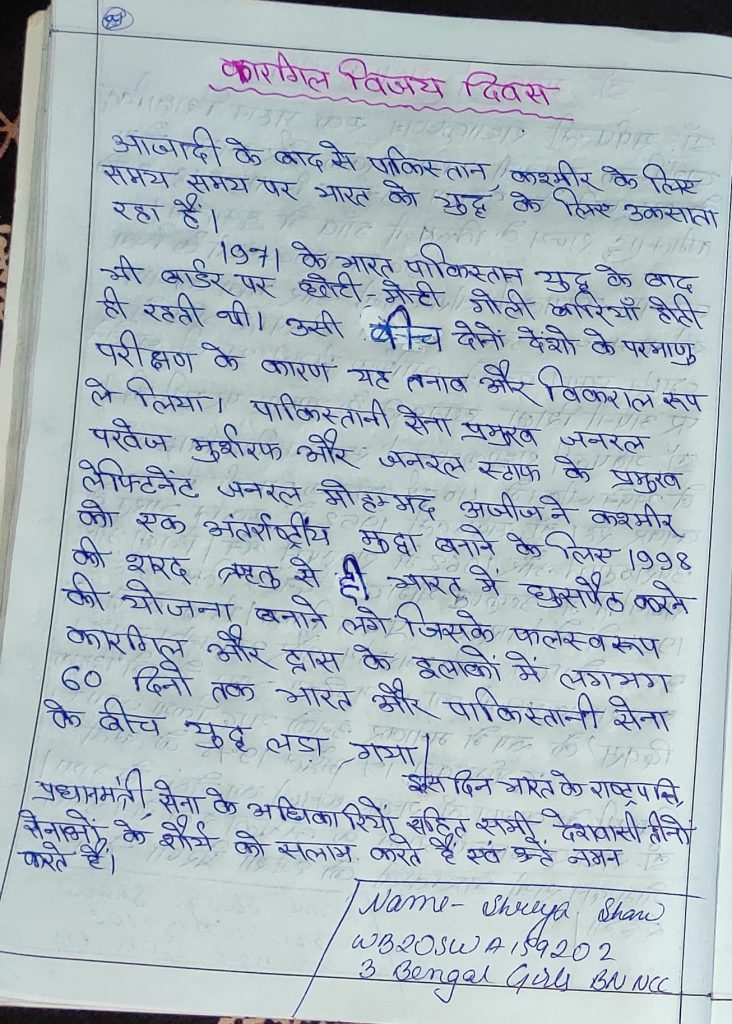 कारगिल विजय दिवस
आजादी के बाद से पाकिस्तान, कश्मीर के लिए
समय समय पर भारत को युद्ध के लिए उकसाता
रहा है।
1971 के भारत पाकिस्तान युद्ध के बाद
भी बार्डर पर छोटी-मोटी गोली बारियाँ होती
ही रहती थी। उसी बीच दोनों देशों के परमाणु
परीक्षण के कारण यह तनाव और विकराल रूप
ले लिया। पाकिस्तानी सेना प्रमुख जनरल
परवेज मुर्शरफ और जनरल स्टाफ के प्रमुख
लेफ्टिनेंट जनरल मोहम्मद अजीज ने कश्मीर
को एक अंतर्राष्ट्रीय मुद्दा बनाने के लिए 1998
की शरद ऋतु से ही भारत में घुसपैठ करने
की योजना बनाने लगे जिसके फलस्वरूप
कारगिल और द्रास के इलाकों में लगभग
60 दिनों तक भारत और पाकिस्तानी सेना
के बीच युद्ध लड़ा गया।
इस दिन भारत के राष्ट्रपति,
प्रधानमंत्री, सेना के अधिकारियों सहित सभी देशवासी तीनों
सेनाओं के शौर्य को सलाम करते हैं एवं उन्हें नमन
करते हैं।
Name- Shreya Shaw
WB20SWA159202
3 Bengal Girls BN NCC